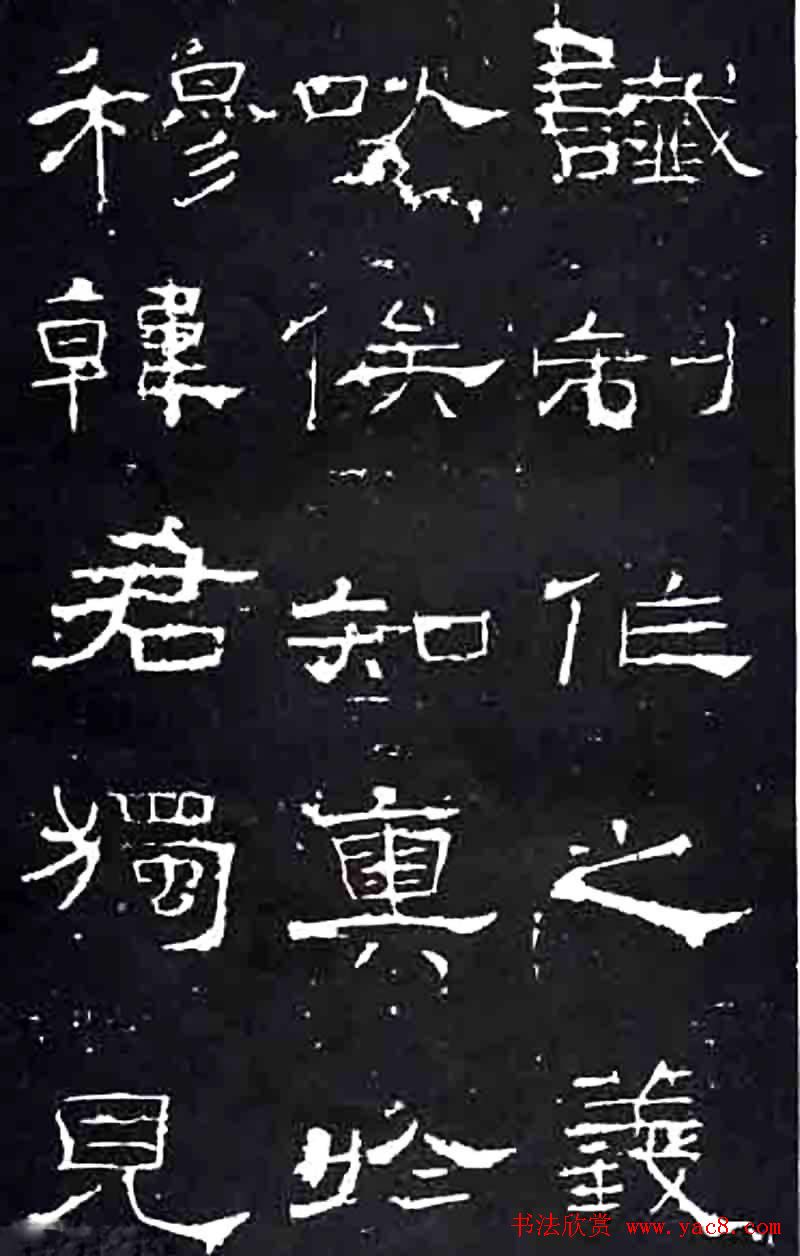 讖制作之義
以俟知奧於
穆韓君獨見
书法欣赏 www.yac8.com